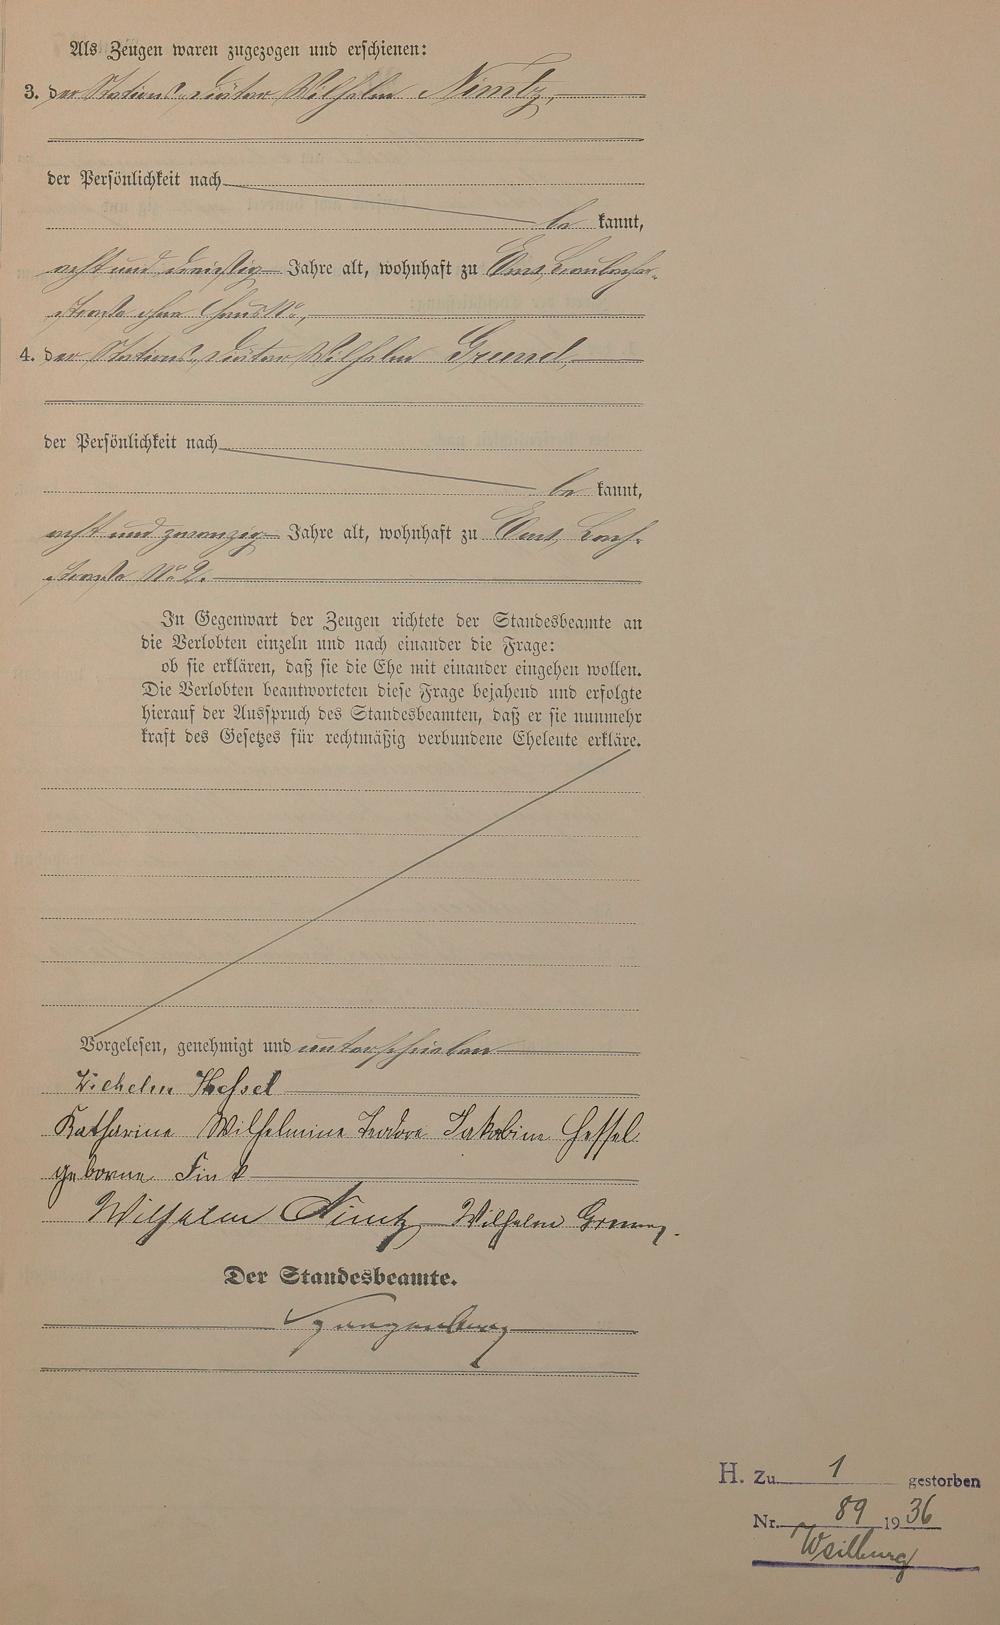 Als Zeugen waren zugezogen und erschienen:
3. der Stations-Diätar Wilhelm Nimtz,
der Persönlichkeit nach
be kannt,
acht und dreißig Jahre alt, wohnhaft zu Ems, Braubacher-
straße ohne Haus No,
4. der Stations-Diätar Wilhelm Grund,
der Persönlichkeit nach
be kannt,
acht und zwanzig Jahre alt, wohnhaft zu Ems,
straße No 2.
In Gegenwart der Zeugen richtete der Standesbeamte an
die Verlobten einzeln und nach einander die Frage:
ob sie erklären, daß sie die Ehe mit einander eingehen wollen.
Die Verlobten beantworteten diese Frage bejahend und erfolgte
hierauf der Ausspruch des Standesbeamten, daß er sie nunmehr
kraft des Gesetzes für rechtmäßig verbundene Eheleute erkläre.
Vorgelesen, genehmigt und unterschrieben
Wilhelm Hessel
Katharine Wilhelmine Teodore Jakobine Hessel
geborne Fink
Wilhelm Nimtz Wilhelm Grund.
Der Standesbeamte.
H. Zu 1 gestorben
Nr. 89 1936
Weilburg